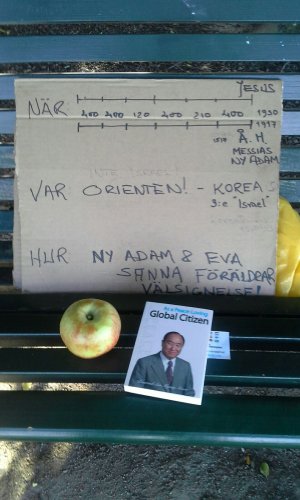 JESUS
NÄR
400 400 120 400 210 400 1930
1917
1517 Å. H.
MESSIAS
NY ADAM
VAR ORIENTEN! - KOREA
3:e "Israel"
HUR NY ADAM & EVA
SANNA FÖRÄLDRAR
VÄLSIGNELSE!
As a Peace-Loving
Global Citizen